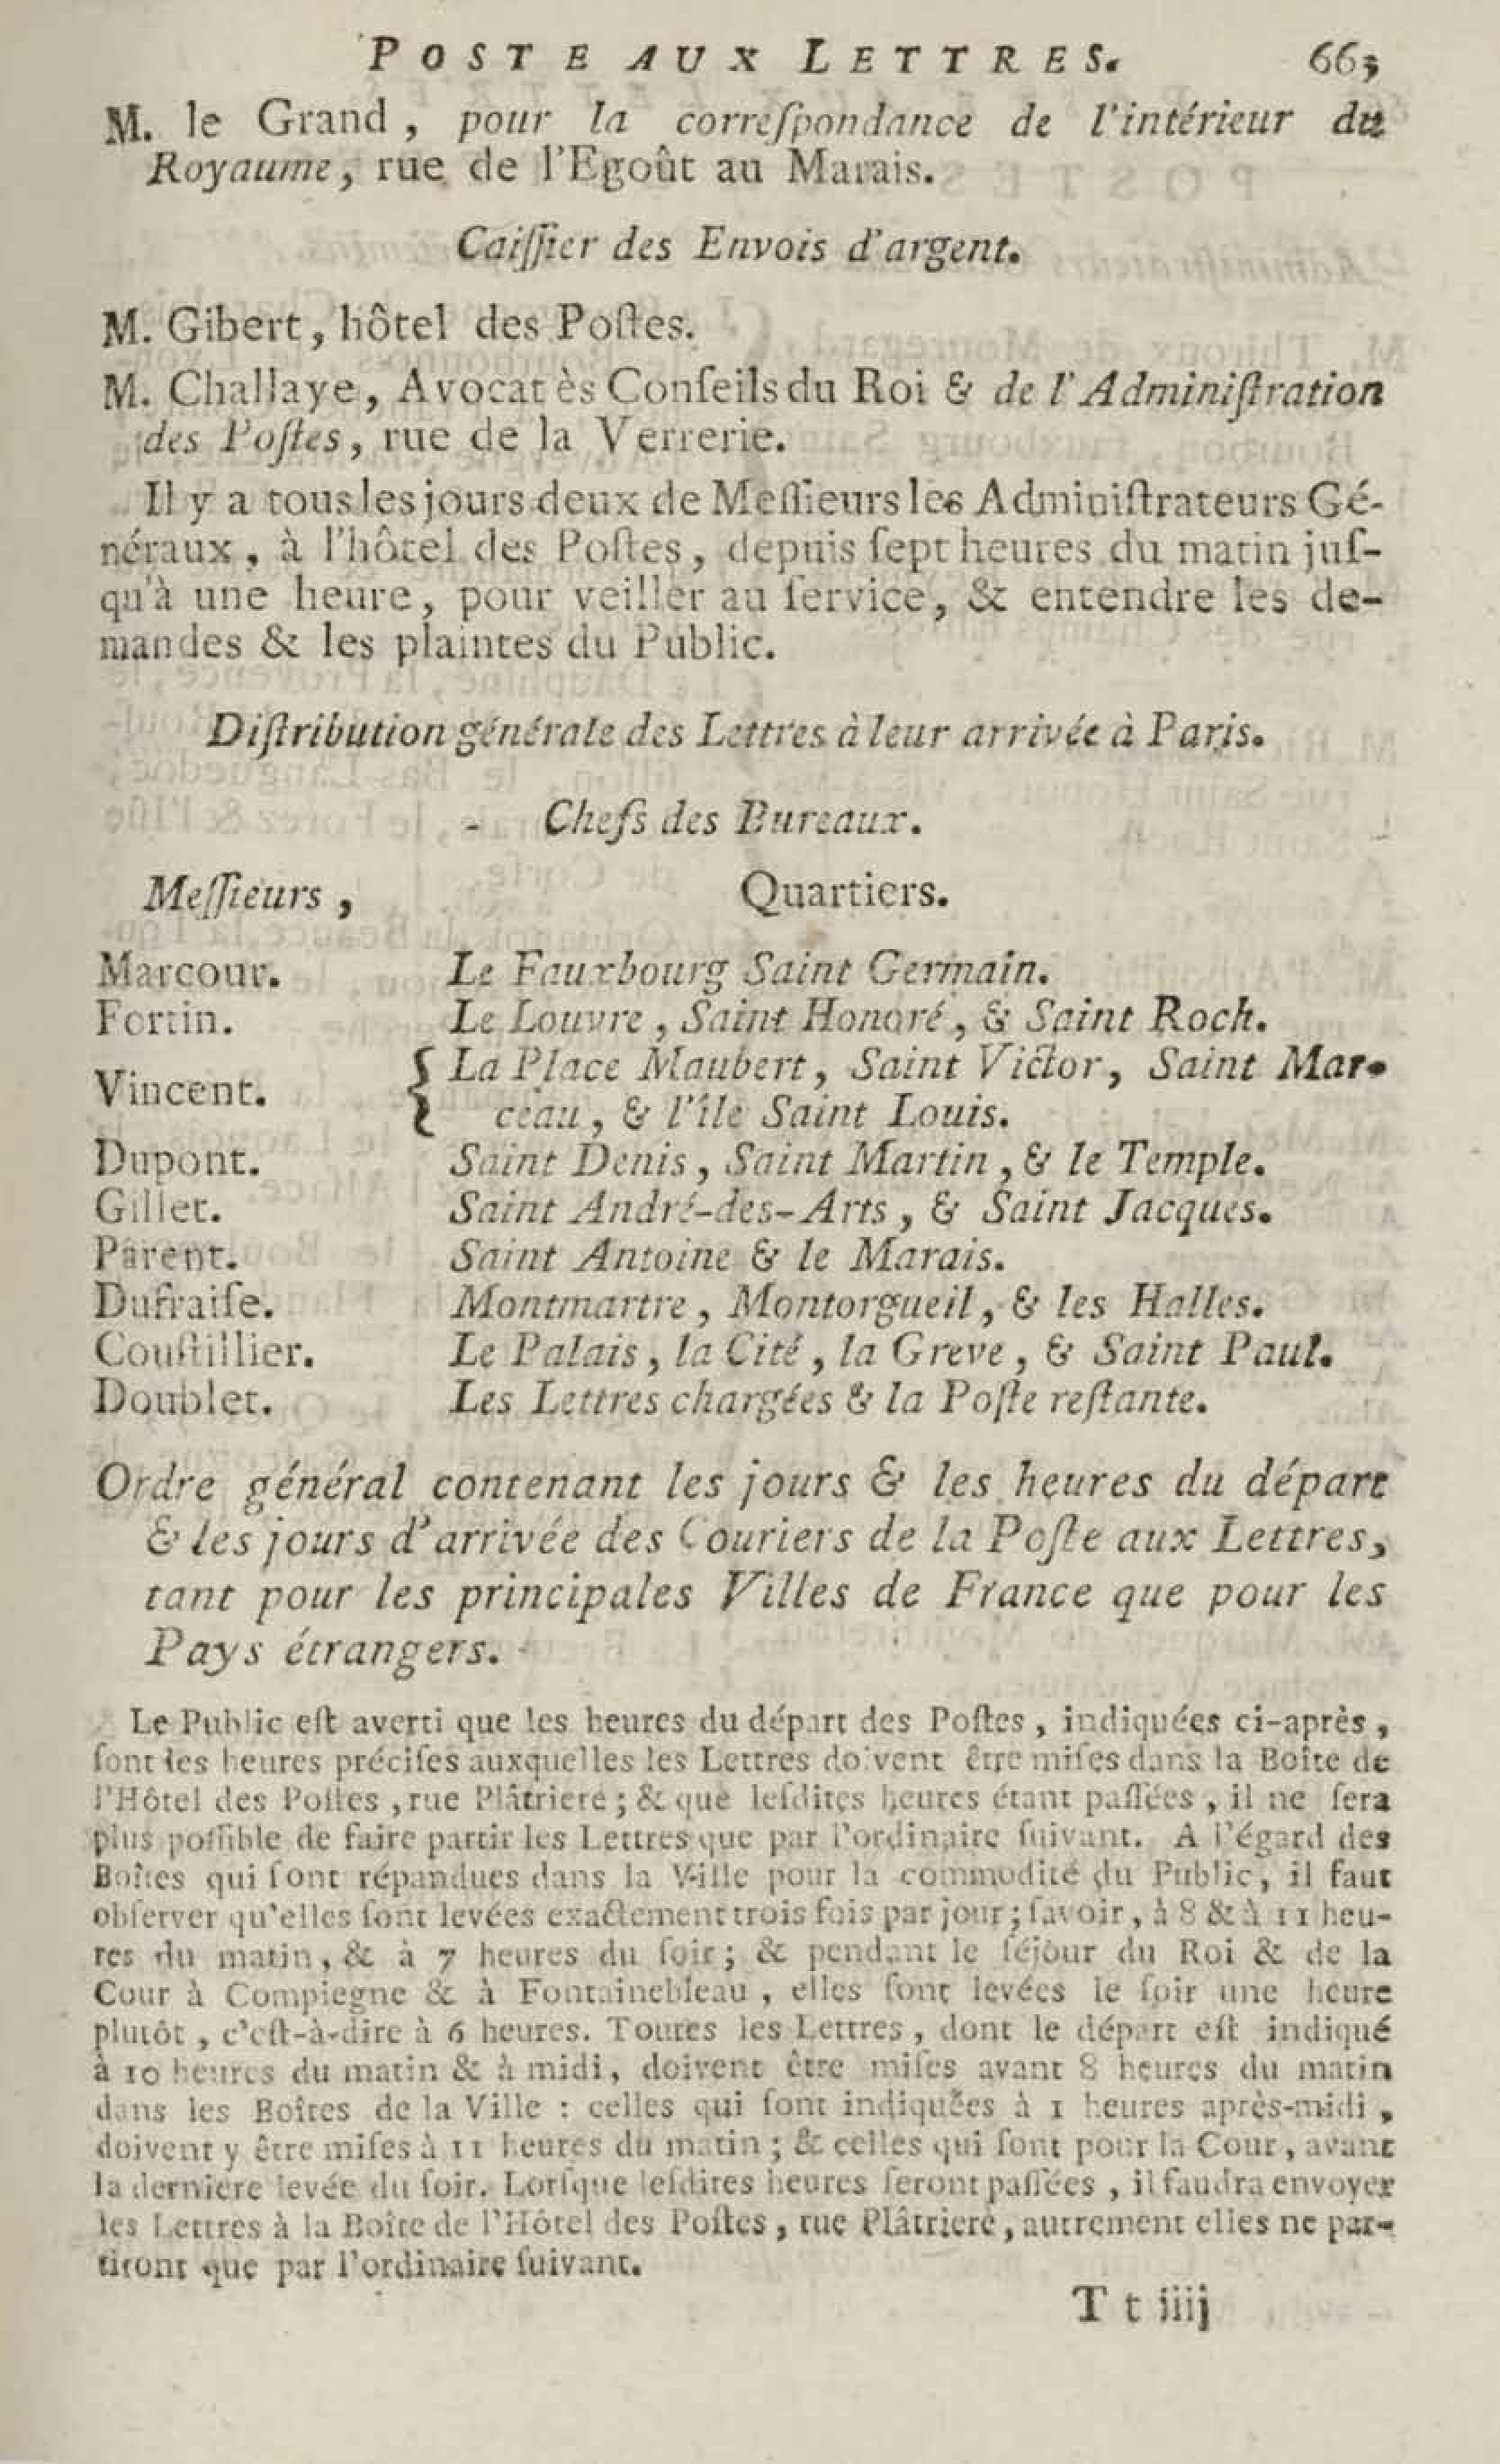 POSTE AUX LETTRES. 663
M. le Grand, pour la correſpondance de l'intérieur du
Royaume, rue de l'Egoût au Marais.
Caiſſier des Envois d'argent.
M. Gibert, hôtel des Poſtes.
M. Challaye, Avocat ès Conſeils du Roi & de l'Adminiſtration
des Poſtes, rue de la Verrerie.
Il y a tous les jours deux de Meſſieurs les Adminiſtrateurs Gé-
néraux, à l'hôtel des Poſtes, depuis ſept heures du matin juſ-
qu'à une heure, pour veiller au ſervice, & entendre les de-
mandes & les plaintes du Public.
Diſtribution générale des Lettres à leur arrivée à Paris.
Chefs des Bureaux.
Meſſieurs, Quartiers.
Marcour. Le Fauxbourg Saint Germain.
Fortin. Le Louvre, Saint Honoré, & Saint Roch.
Vincent. { La Place Maubert, Saint Victor, Saint Mar-
ceau, & l'île Saint Louis.
Dupont. Saint Denis, Saint Martin, & le Temple.
Gillet. Saint André-des-Arts, & Saint Jacques.
Parent. Saint Antoine & le Marais.
Dufraiſe. Montmartre, Montorgueil, & les Halles.
Couſtillier. Le Palais, la Cité, la Greve, & Saint Paul.
Doublet. Les Lettres chargées & la Poſte reſtante.
Ordre général contenant les jours & les heures du départ
& les jours d'arrivée des Couriers de la Poſte aux Lettres,
tant pour les principales Villes de France que pour les
Pays étrangers.
Le Public eſt averti que les heures du départ des Poſtes, indiquées ci-après,
ſont les heures préciſes auxquelles les Lettres doivent être miſes dans la Boîte de
l'Hôtel des Poſtes, rue Plâtriere; & que leſdites heures étant paſſées, il ne ſera
plus poſſible de faire partir les Lettres que par l'ordinaire ſuivant. A l'égard des
Boîtes qui ſont répandues dans la Ville pour la commodité du Public, il faut
obſerver qu'elles ſont levées exactement trois fois par jour; ſavoir, à 8 & à 11 heu-
res du matin, & à 7 heures du ſoir; & pendant le ſéjour du Roi & de la
Cour à Compiegne & à Fontainebleau, elles ſont levées le ſoir une heure
plutôt, c'eſt-à-dire à 6 heures. Toutes les Lettres, dont le départ eſt indiqué
à 10 heures du matin & à midi, doivent être miſes avant 8 heures du matin
dans les Boîtes de la Ville : celles qui ſont indiquées à 1 heures après-midi,
doivent y être miſes à 11 heures du matin; & celles qui ſont pour la Cour, avant
la derniere levée du ſoir. Lorſque leſdites heures ſeront paſſées, il faudra envoyer
les Lettres à la Boîte de l'Hôtel des Poſtes, rue Plâtriere, autrement elles ne par-
tiront que par l'ordinaire ſuivant.
T t iiij